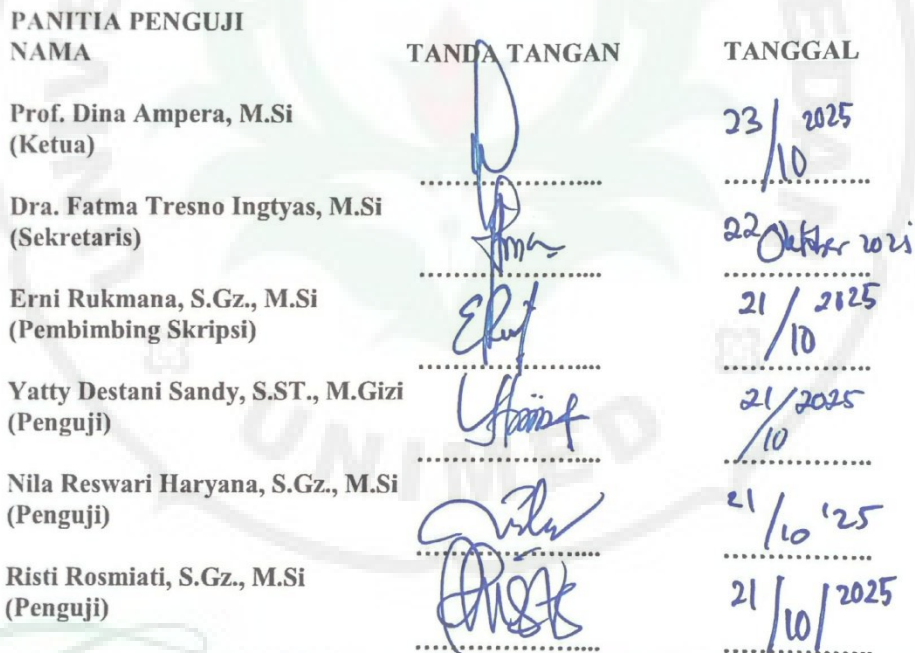 PANITIA PENGUJI
NAMA TANDA TANGAN TANGGAL
Prof. Dina Ampera, M.Si
(Ketua)
23/10 2025
Dra. Fatma Tresno Ingtyas, M.Si
(Sekretaris)
22 Oktober 2025
Erni Rukmana, S.Gz., M.Si
(Pembimbing Skripsi)
21/10 2125
Yatty Destani Sandy, S.ST., M.Gizi
(Penguji)
21/10 2025
Nila Reswari Haryana, S.Gz., M.Si
(Penguji)
21/10 '25
Risti Rosmiati, S.Gz., M.Si
(Penguji)
21/10/2025
UNIMED